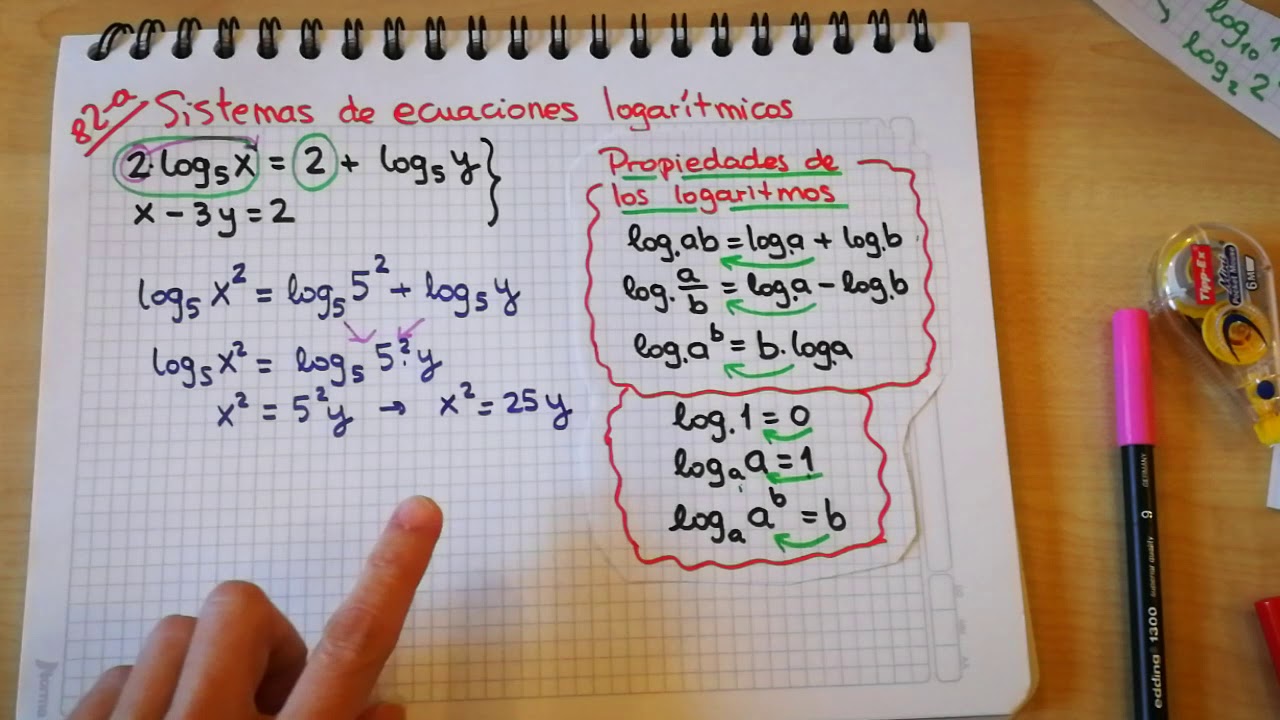 82-a Sistemas de ecuaciones logarítmicos
2·log₅x = 2 + log₅y }
x - 3y = 2
log₅x² = log₅5² + log₅y
log₅x² = log₅5²·y
x² = 5²y → x² = 25y
Propiedades de
los logaritmos
log.ab = log.a + log.b
log.a/b = log.a - log.b
log.aᵇ = b·log.a
log.1 = 0
logₐa = 1
logₐaᵇ = b
log₁₀ 1
log₂ 2
Tipp-Ex
Mini
Pocket Mouse
6M
GERMANY
9
edding 1300